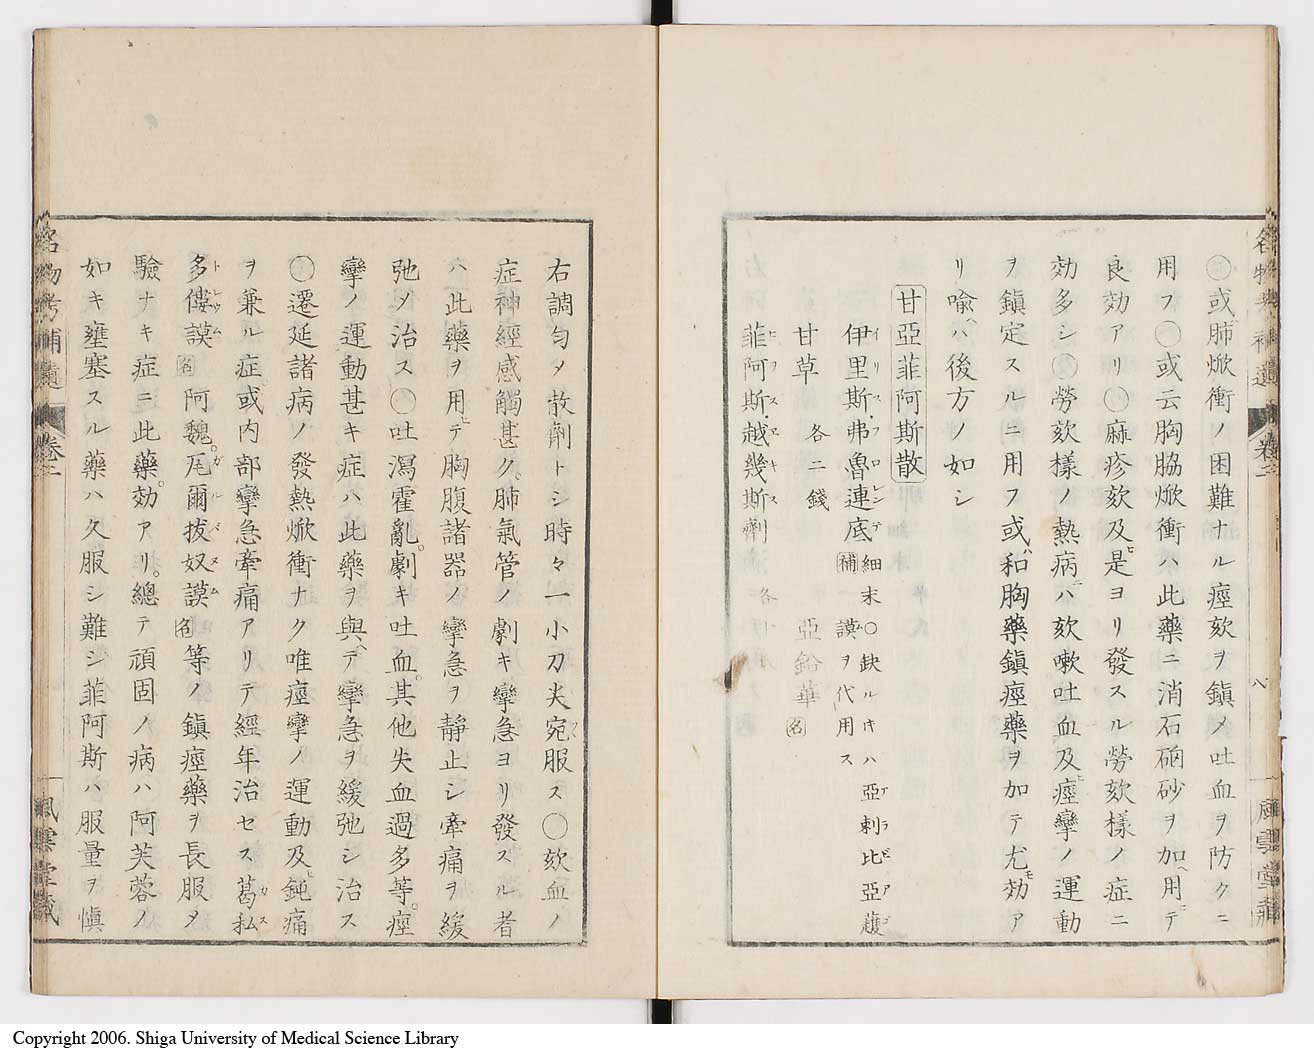 〇或肺焮衝ノ困難ナル痙欬ヲ鎮メ吐血ヲ防クニ
用フ〇或云胸脇焮衝ハ此藥ニ消石硇砂ヲ加ヘ用ヒテ
良効アリ〇麻疹欬及ヒ是ヨリ發スル勞欬樣ノ症ニ
効多シ〇勞欬樣ノ熱病ニハ欬嗽吐血及ヒ痙攣ノ運動
ヲ鎮定スルニ用フ或ハ和胸藥鎮痙藥ヲ加テ尤モ効ア
リ喩ヘハ後方ノ如シ
甘亞菲阿斯散
伊里斯弗魯連底 イリスフロレンテ 補 細末〇缺ルキハ亞剌比亞護 アラビアゴ
謨ヲ代用ス
甘草 各二錢 亞鉛華 名
菲阿斯越幾斯劑 ヒヲスエキス
右調勻メ散劑トシ時々一小刀尖宛ツヽ服ス〇欬血ノ
症神經感觸甚ク肺氣管ノ劇キ攣急ヨリ發スル者
ハ此藥ヲ用ヒテ胸腹諸器ノ攣急ヲ靜止シ牽痛ヲ緩
弛メ治ス〇吐瀉霍亂劇キ吐血其他失血過多等痙
攣ノ運動甚キ症ハ此藥ヲ與ヘテ攣急ヲ緩弛シ治ス
〇遷延諸病ノ發熱焮衝ナク唯痙攣ノ運動及ヒ鈍痛
ヲ兼ル症或内部攣急牽痛アリテ經年治セス葛私 カス
多僂謨 トレウム 名 阿魏瓦爾拔奴謨 ガルバヌム 名 等ノ鎮痙藥ヲ長服メ
驗ナキ症ニ此藥効アリ總テ頑固ノ病ハ阿芙蓉ノ
如キ壅塞スル藥ハ久服シ難シ菲阿斯ハ服量ヲ愼
名物考補遺 卷二 八 風雲堂藏